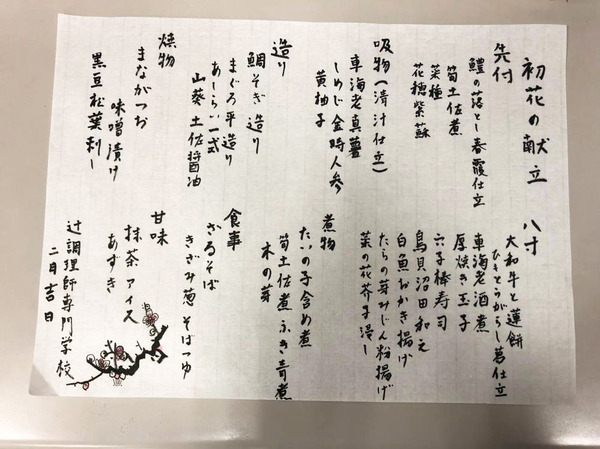 初花の献立
先付
鱧の落とし春霞仕立
筍土佐煮
菜種
花穂紫蘇
吸物(清汁仕立)
車海老真薯
しめじ金時人参
黄柚子
造り
鯛そぎ造り
まぐろ平造り
あしらい一式
山葵土佐醤油
焼物
まながつお
味噌漬け
黒豆松葉刺し
八寸
大和牛と蓮餅
ひもとうがらし葛仕立
車海老酒煮
厚焼き玉子
穴子棒寿司
鳥貝沼田和え
白魚おかき揚げ
たらの芽みじん粉揚げ
菜の花芥子浸し
煮物
たいの子含め煮
筍土佐煮ふき青煮
木の芽
食事
ざるそば
きざみ葱そばつゆ
甘味
抹茶アイス
あずき
辻調理師専門学校
二月吉日